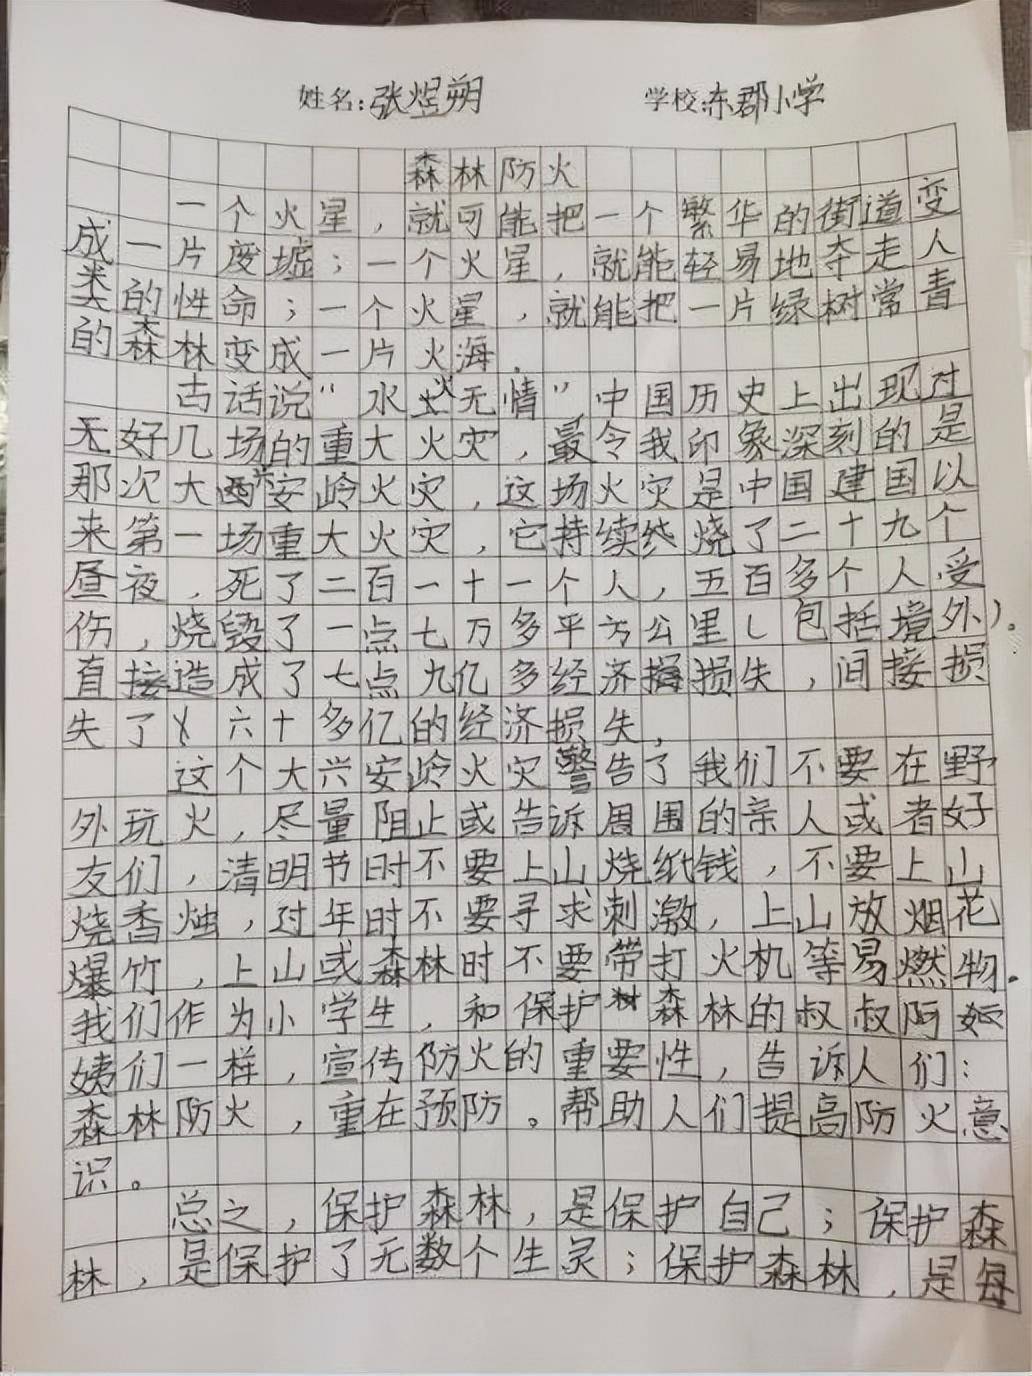 姓名:张煜朔 学校:东郡小学
森林防火
一个火星，就可能把一个繁华的街道变
成一片废墟；一个火星，就能轻易地夺走人
类的性命；一个火星，就能把一片绿树常青
的森林变成一片火海.
古话说“水火无情”中国历史上出现过
无好几场的重大火灾，最令我印象深刻的是
那次大兴安岭火灾，这场火灾是中国建国以
来第一场重大火灾，它持续终烧了二十九个
昼夜，死了二百一十一个人，五百多个人受
伤，烧毁了一点七万多平方公里（包括境外）。
直接造成了七点九亿多经济损失，间接损
失了六十多亿的经济损失，
这个大兴安岭火灾警告了我们不要在野
外玩火，尽量阻止或告诉周围的亲人或者好
友们，清明节时不要上山烧纸钱，不要上山
烧香烛，过年时不要寻求刺激，上山放烟花
爆竹，上山或森林时不要带打火机等易燃物.
我们作为小学生，和保护树森林的叔叔阿
姨们一样，宣传防火的重要性，告诉人们：
森林防火，重在预防。帮助人们提高防火意
识。
总之，保护森林，是保护自己；保护森
林，是保护了无数个生灵；保护森林，是每